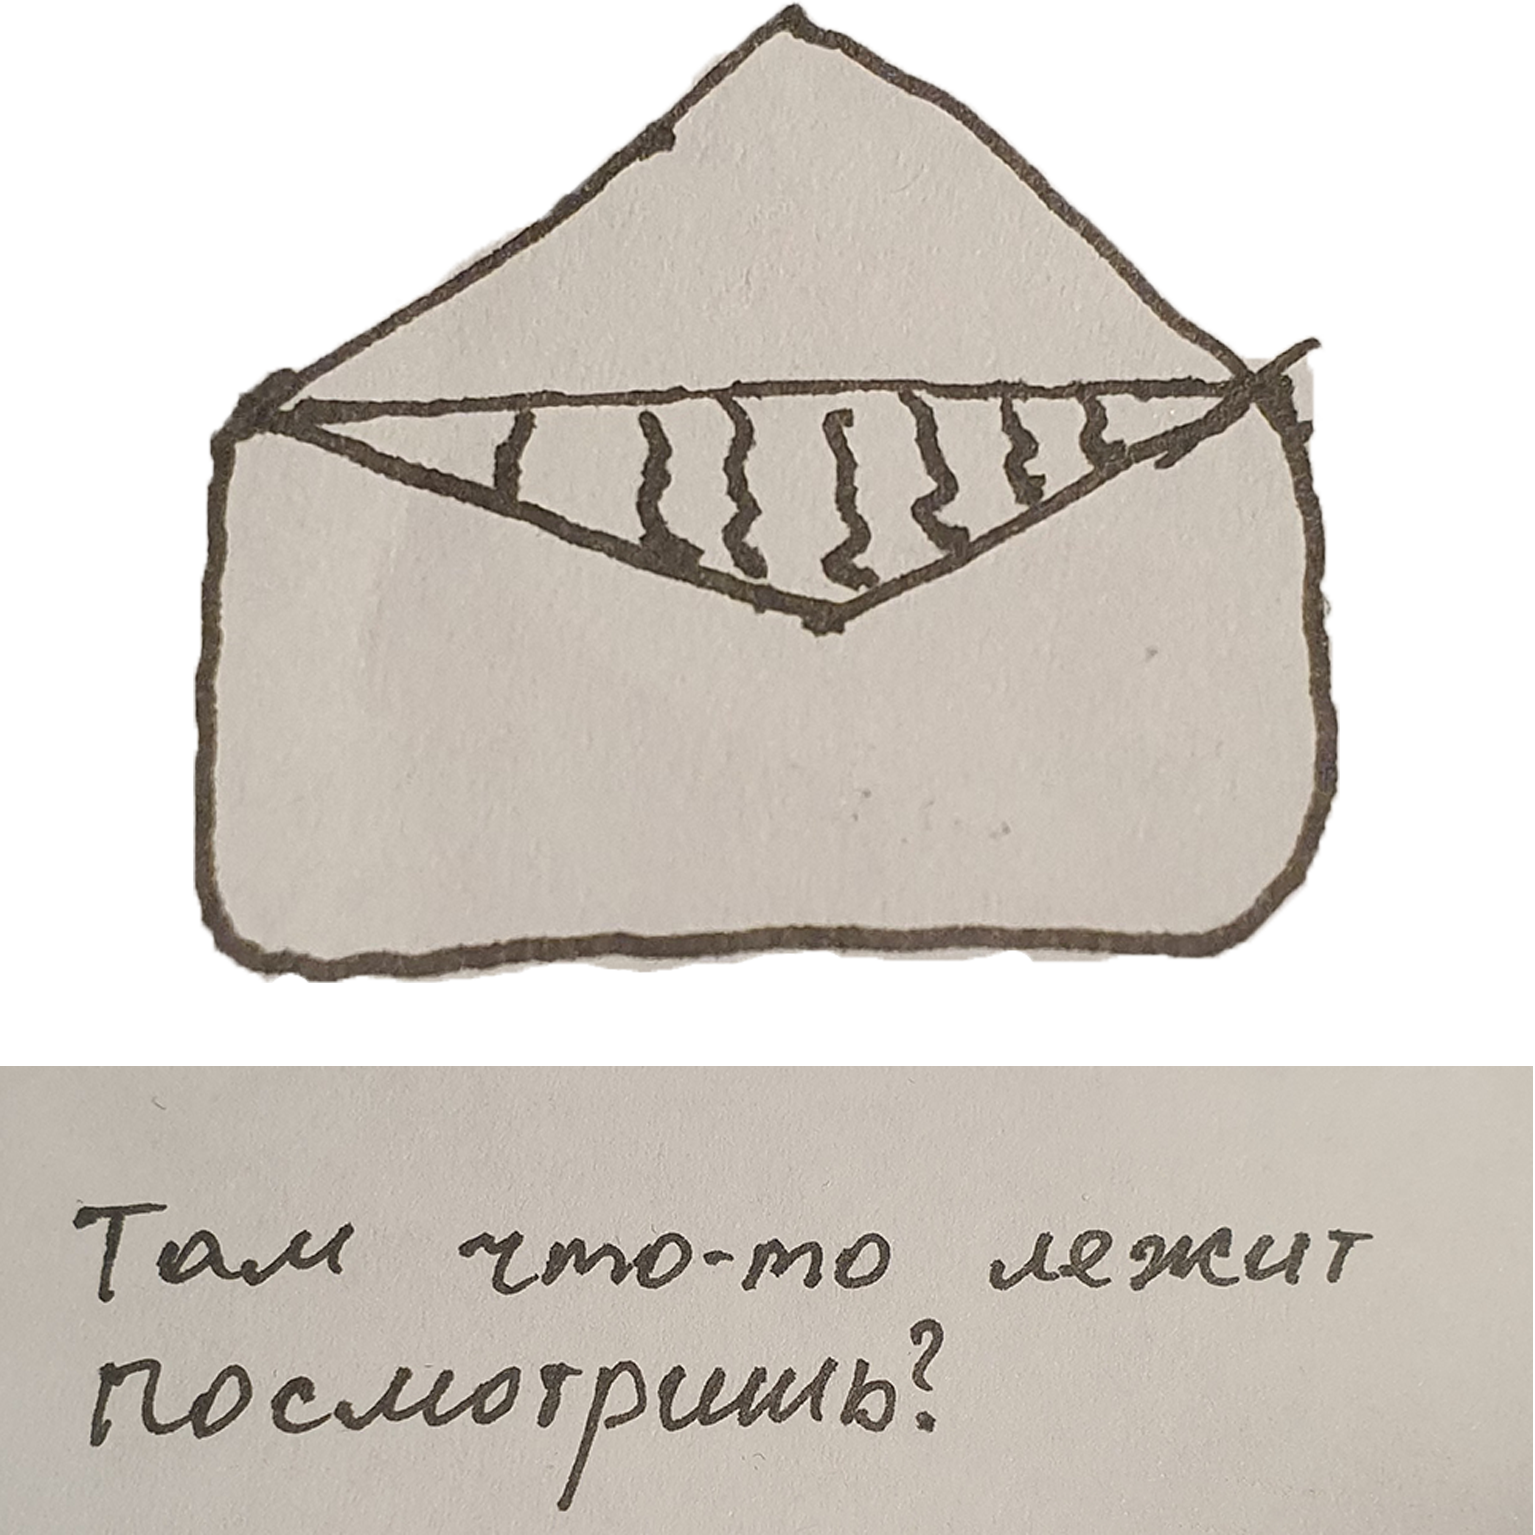 Там что-то лежит
посмотришь?